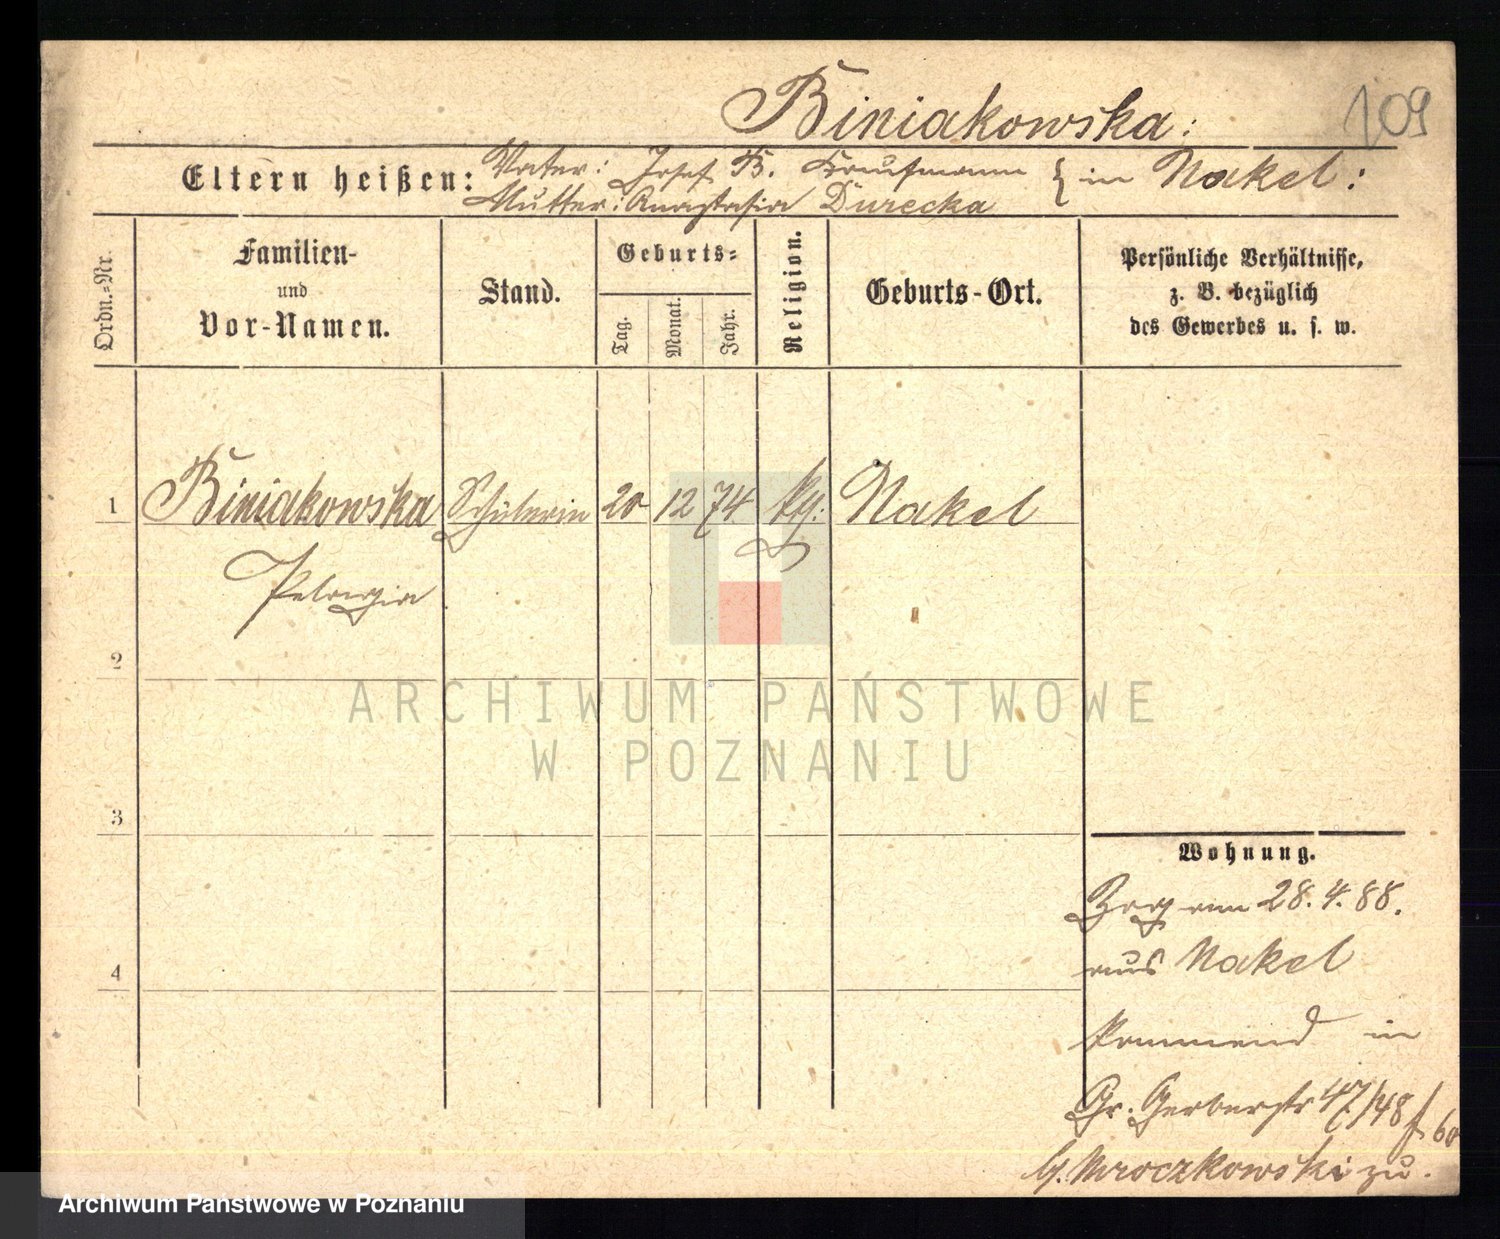 Biniakowska:
109
Eltern heißen:
Vater: Josef B. Kaufmann } in Nakel:
Mutter: Anastasia Durecka
Ordn.-Nr.
Familien- und Vor-Namen.
Stand.
Geburts-
Tag.
Monat.
Jahr.
Religion.
Geburts-Ort.
Persönliche Verhältnisse,
z. B. bezüglich
des Gewerbes u. s. w.
1 Biniakowska Schülerin 20 12 74 kth: Nakel
Pelargia
2
3
4
Wohnung.
Zog am 28.4.88.
aus Nakel
kommend in
Gr. Gerberstr 47/48
b. Mroczkowski zu.
ARCHIWUM PAŃSTWOWE
W POZNANIU
Archiwum Państwowe w Poznaniu